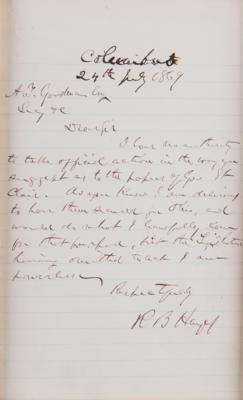 Columbus O
24th July 1869
A. T. Goodman Esq
Secy &c
Dear Sir
I have no authority
to take official action in the way you
suggest as to the papers of Gov. St
Clair. As you know I am desirous
to have them secured for Ohio, and
would do what I lawfully can
for that purpose, but the Legislature
having omitted to act I am
powerless.
Respectfully
R B Hayes